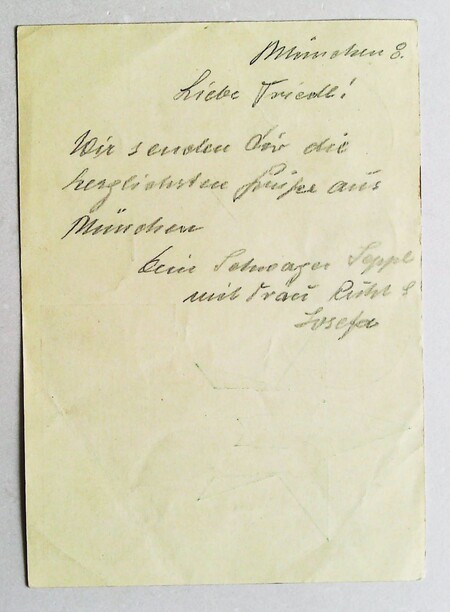 München 8.
Liebe Friedl!
Wir senden Dir die
herzlichsten Grüße aus
München
Dein Schwager Seppl
mit Frau &
Josefa